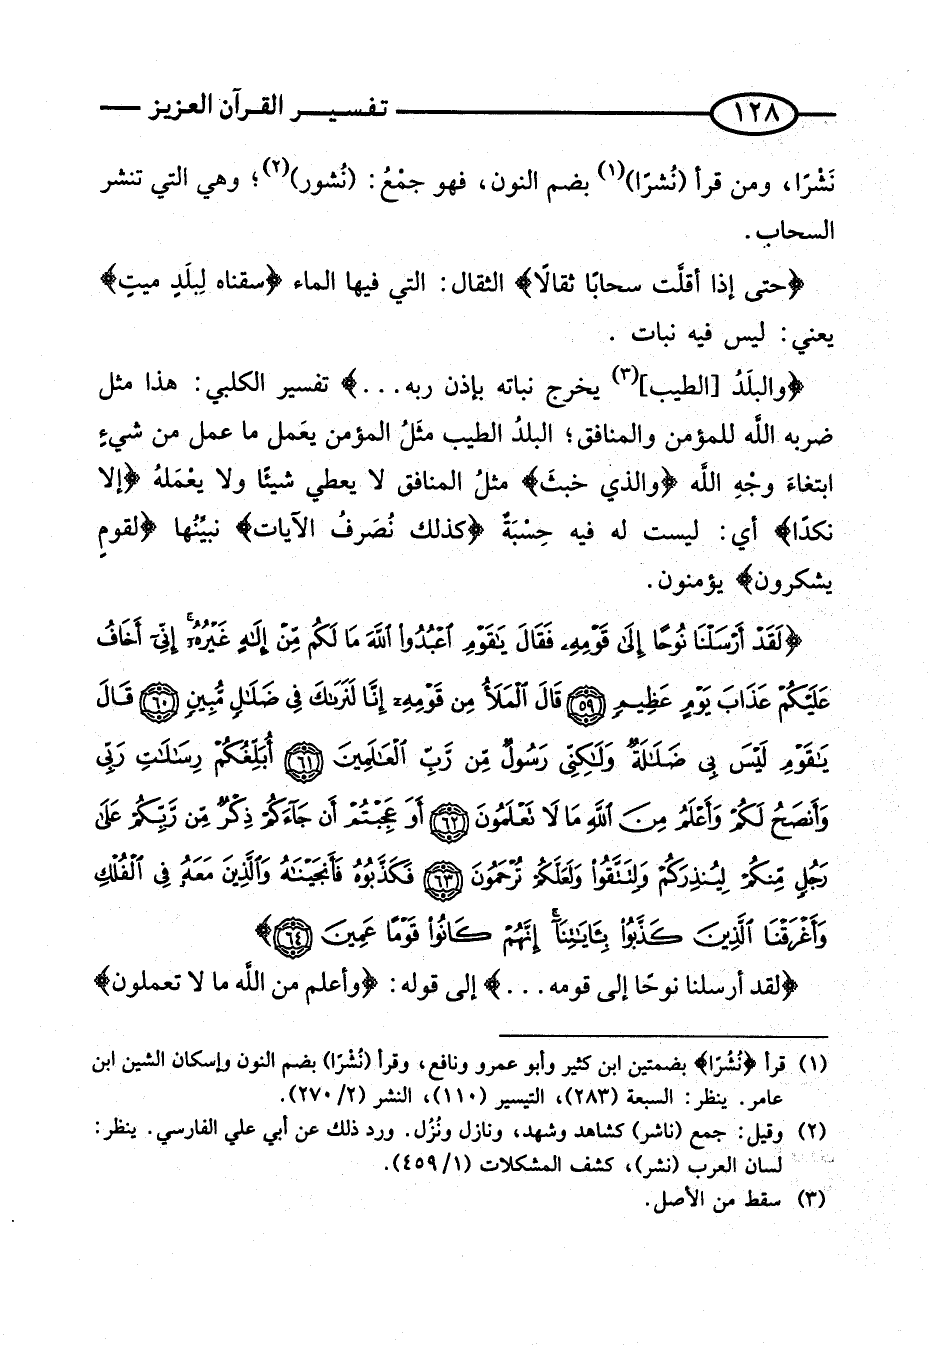 ١٢٨ تفسير القرآن العزيز
نَشْرًا، ومن قرأ (نُشرًا)(١) بضم النون، فهو جمْعُ: (نُشور)(٢)؛ وهي التي تنشر
السحاب.
﴿حتى إذا أقلَّت سحابًا ثقالًا﴾ الثقال: التي فيها الماء ﴿سقناه لِبلَدٍ ميتٍ﴾
يعني: ليس فيه نبات .
﴿والبلَدُ [الطيب](٣) يخرج نباته بإذن ربه...﴾ تفسير الكلبي: هذا مثل
ضربه اللَّه للمؤمن والمنافق؛ البلدُ الطيب مثَلُ المؤمن يعَمل ما عمل من شيءٍ
ابتغاءَ وجْهِ اللَّه ﴿والذي خبثَ﴾ مثلُ المنافق لا يعطي شيئًا ولا يعْمَلهُ ﴿إلا
نكدًا﴾ أي: ليست له فيه حِسْبَةٌ ﴿كذلك نُصَرفُ الآيات﴾ نبيِّنُها ﴿لقومٍ
يشكرون﴾ يؤمنون.
﴿لَقَدْ أَرْسَلْنَا نُوحًا إِلَىٰ قَوْمِهِۦ فَقَالَ يَٰقَوْمِ ٱعْبُدُوا۟ ٱللَّهَ مَا لَكُم مِّنْ إِلَٰهٍ غَيْرُهُۥٓ إِنِّىٓ أَخَافُ
عَلَيْكُمْ عَذَابَ يَوْمٍ عَظِيمٍ ٥٩ قَالَ ٱلْمَلَأُ مِن قَوْمِهِۦٓ إِنَّا لَنَرَىٰكَ فِى ضَلَٰلٍ مُّبِينٍ ٦٠ قَالَ
يَٰقَوْمِ لَيْسَ بِى ضَلَٰلَةٌ وَلَٰكِنِّى رَسُولٌ مِّن رَّبِّ ٱلْعَٰلَمِينَ ٦١ أُبَلِّغُكُمْ رِسَٰلَٰتِ رَبِّى
وَأَنصَحُ لَكُمْ وَأَعْلَمُ مِنَ ٱللَّهِ مَا لَا تَعْلَمُونَ ٦٢ أَوَ عَجِبْتُمْ أَن جَآءَكُمْ ذِكْرٌ مِّن رَّبِّكُمْ عَلَىٰ
رَجُلٍ مِّنكُمْ لِيُنذِرَكُمْ وَلِتَتَّقُوا۟ وَلَعَلَّكُمْ تُرْحَمُونَ ٦٣ فَكَذَّبُوهُ فَأَنجَيْنَٰهُ وَٱلَّذِينَ مَعَهُۥ فِى ٱلْفُلْكِ
وَأَغْرَقْنَا ٱلَّذِينَ كَذَّبُوا۟ بِـَٔايَٰتِنَآ إِنَّهُمْ كَانُوا۟ قَوْمًا عَمِينَ ٦٤﴾
﴿لقد أرسلنا نوحًا إلى قومه...﴾ إلى قوله: ﴿وأعلم من اللَّه ما لا تعملون﴾
(١) قرأ ﴿نُشُرًا﴾ بضمتين ابن كثير وأبو عمرو ونافع، وقرأ (نُشْرًا) بضم النون وإسكان الشين ابن
عامر. ينظر: السبعة (٢٨٣)، التيسير (١١٠)، النشر (٢/ ٢٧٠).
(٢) وقيل: جمع (ناشر) كشاهد وشهد، ونازل ونُزُل. ورد ذلك عن أبي علي الفارسي. ينظر:
لسان العرب (نشر)، كشف المشكلات (١/ ٤٥٩).
(٣) سقط من الأصل.